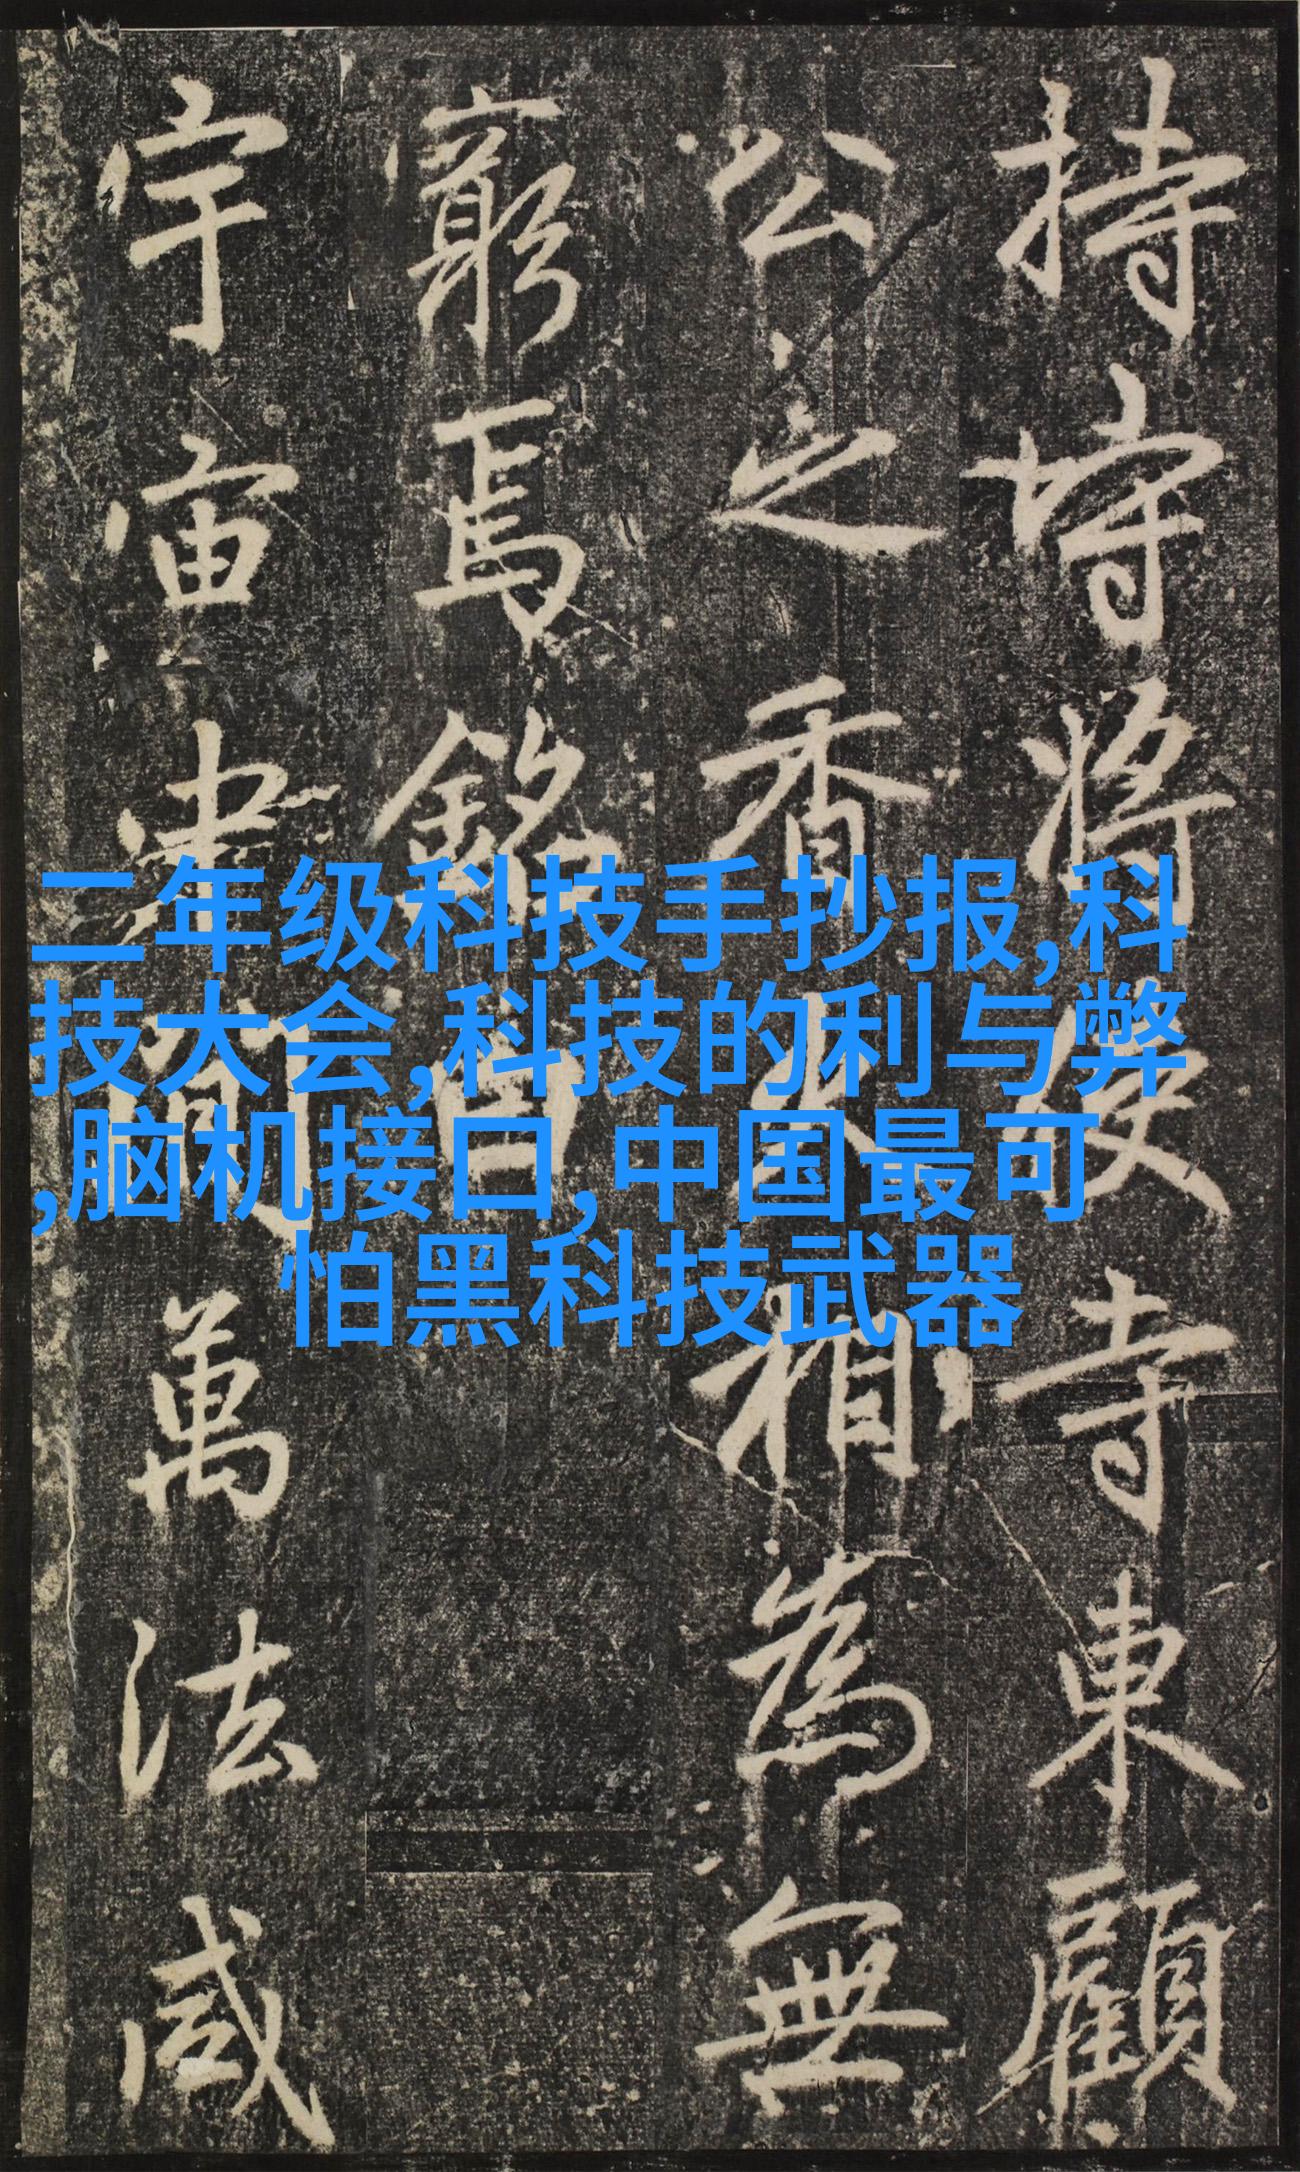 二年级科技手抄报,科
技大会,科技的利与弊
,脑机接口,中国最可
怕黑科技武器
持將使寺東顧
公之香火相為無
窮焉銘曰
宇宙萬法咸